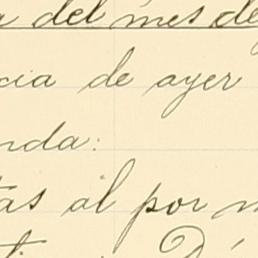 a del mes de
cia de ayer
nda:
tas al por m